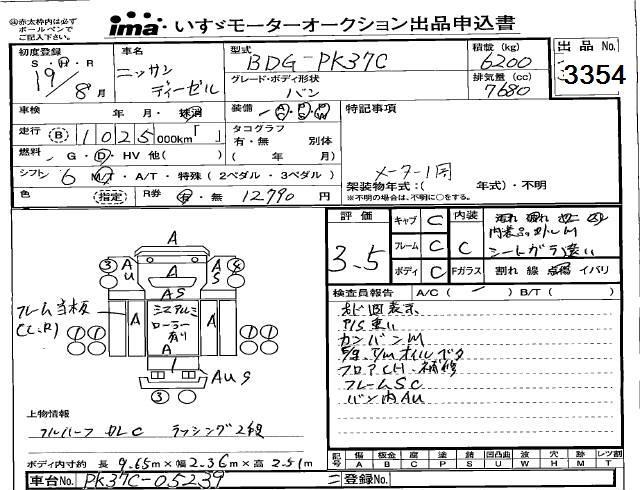 ㊟赤太枠内は必ず
ボールペンで
ご記入下さい。
ima いすゞモーターオークション出品申込書
初度登録
S・H・R
19/8月
車名
ニッサン
ディーゼル
型式
BDG-PK37C
グレード・ボディ形状
バン
積載(kg)
6200
排気量(cc)
7680
出品No.
3354
車検 年・月・抹消
装備 A/C P/S P/W
特記事項
走行 B 1025000km「 」
タコグラフ
有・無 別体
( 年 月)
燃料 G・D・HV 他( )
シフト 6 M/T・A/T・特殊(2ペダル・3ペダル)
メーター1周
架装物年式:( 年式)・不明
※不明の場合は、不明に○をする。
色 (指定) R券 有・無 12790円
評価
3.5
キャブ C
フレーム C
ボディ C
内装 C
内装品
シートガラ違い
Fガラス 割れ 線 点傷 イバリ
検査員報告 A/C( ) B/T( )
P/S重い
カンバンM
フロアCH、補修
フレームSC
バン内AU
A
3 A U A A S 4
A S
フレーム当板
(L,R)
A A ミスアルミ A A
ローラー
有り
1 1 1 1
3 AUS
上物情報
フルハーフ DLC ラッシング2段
ボディ内寸約 長 9.65m×幅 2.36m×高 2.51m
記号 傷 板金 腐 塗 錆 凹凸曲 波 穴 跡 レツ割
A B C P S U W H M T
車台No. PK37C-05239
ニ登録No.